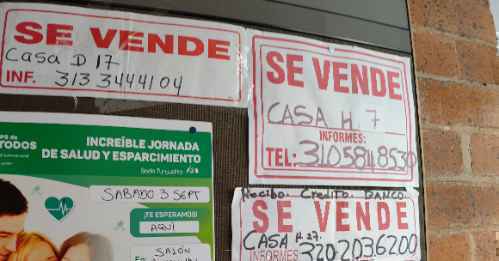 SE VENDE
Casa D 17
INF. 313 3444104
SE VENDE
CASA H. 7
INFORMES:
TEL: 3105848530
TODOS
INCREÍBLE JORNADA
DE SALUD Y ESPARCIMIENTO
SABADO 3 SEPT
¡TE ESPERAMOS!
AQUI
SALÓN
Recibo. Credito. BANCO
SE VENDE
CASA H. 27.
INFORMES 3202036200